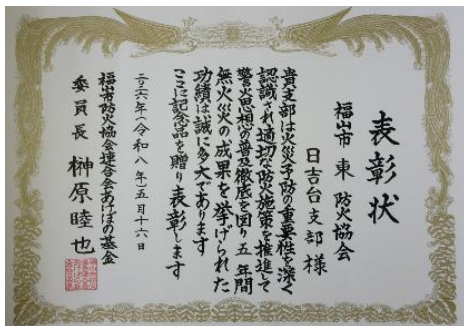 表彰状
福山市 東 防火協会
日吉台支部 様
貴支部は火災予防の重要性を深く
認識され適切な防火施策を推進して
警火思想の普及徹底を図り五年間
無火災の成果を挙げられた
功績は誠に多大であります
ここに記念品を贈り表彰します
二〇二六年(令和八年)五月十六日
福山市防火協会連合会あけぼの基金
委員長 榊原睦也